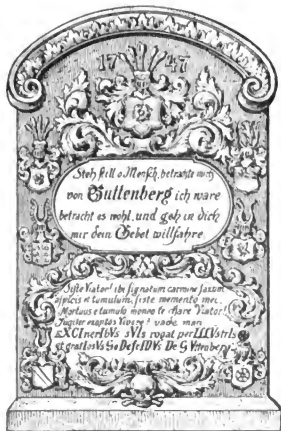 1747
Steh still o Mensch, betrachte mich
von Guttenberg ich ware
betracht es wohl, und geh in dich
mir dein Gebet willfahre.
Siste Viator! ibi signatum carmine saxum
aspicis et tumulum, siste memento mei.
Mortuus e tumulo moneo te chare Viator!
Jugiter exoptas Vivere? vade man
EXCInerIbVs sVIs rogat perILLVstrIs
et gratIosVs GoDefrIDVs De GVttenberg